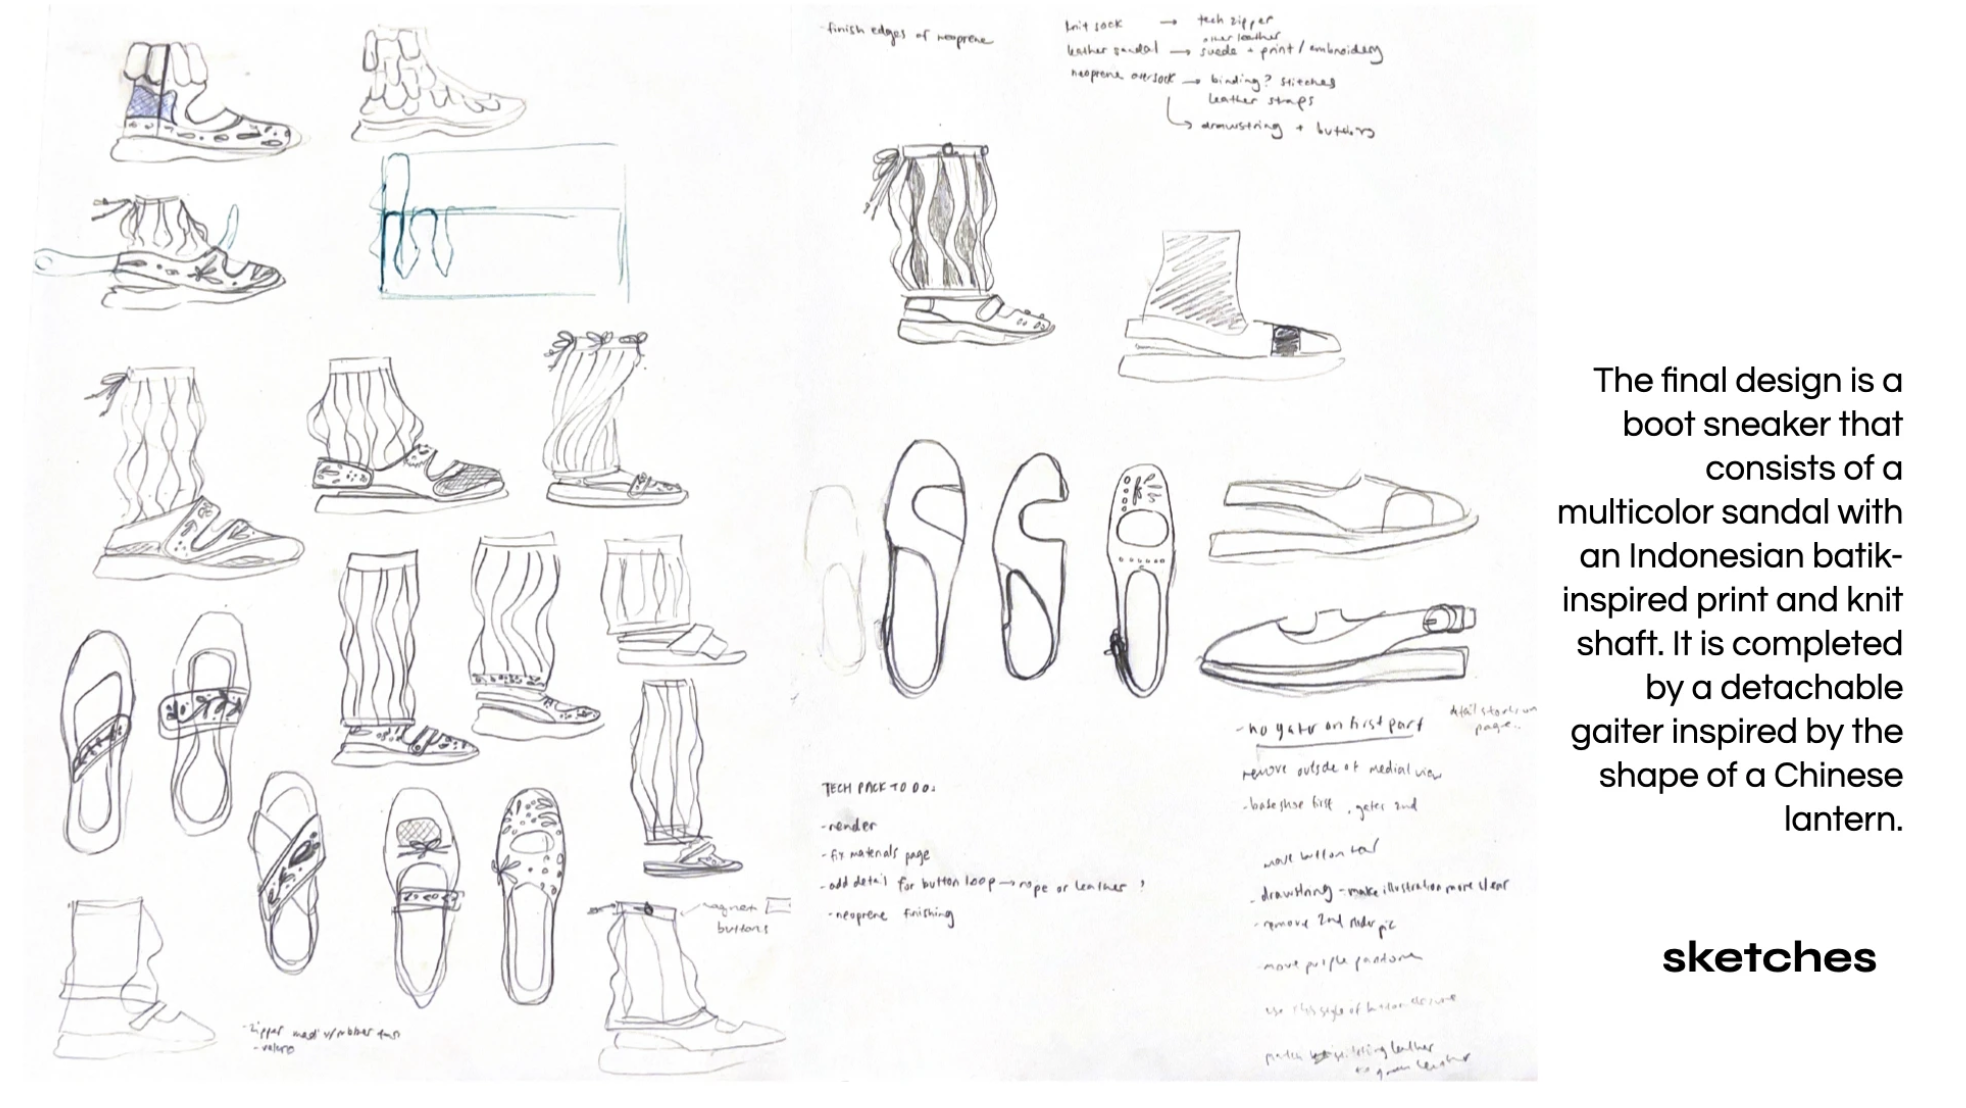 -finish edges of neoprene
knit sock → tech zipper
other leather
leather sandal → suede + print / embroidery
neoprene oversock → binding? stitches
leather straps
↳ drawstring + buttons
The final design is a
boot sneaker that
consists of a
multicolor sandal with
an Indonesian batik-
inspired print and knit
shaft. It is completed
by a detachable
gaiter inspired by the
shape of a Chinese
lantern.
sketches
-no gater on first part
detail
page..
remove outside of medial view
-base shoe first, gater 2nd
TECH PACK TO DO:
-render
-fix materials page
-add detail for button loop → rope or leather ?
-neoprene finishing
move button
-drawstring - make illustration more clear
-remove 2nd
-move purple pantone
use this style of button closure
leather
leather
magnet
buttons
-zipper
-velcro